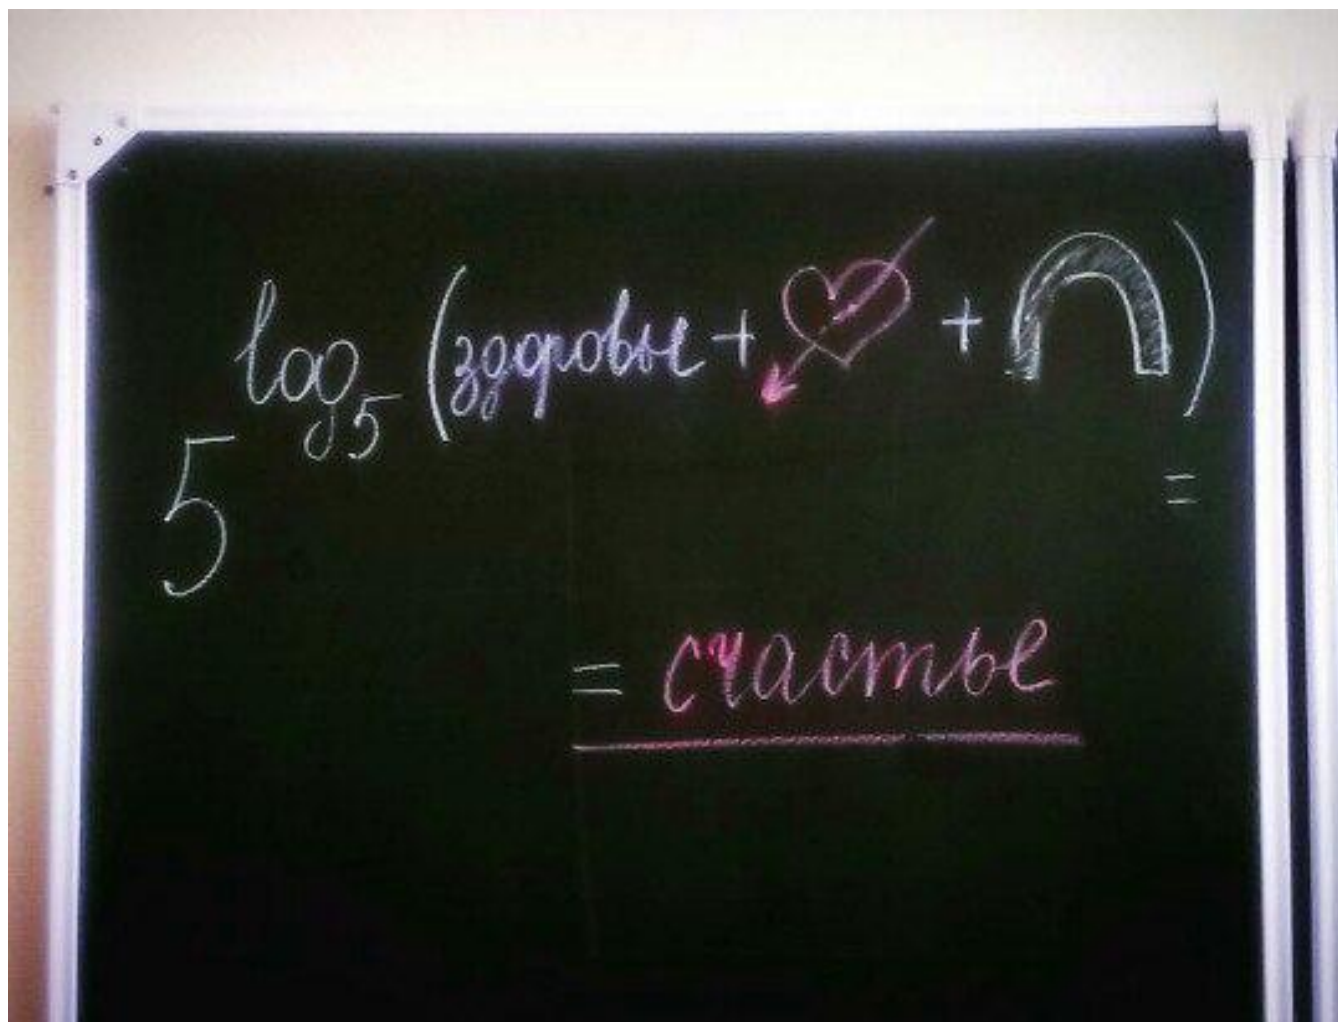 5 log5 (здоровье + + ) =
= счастье